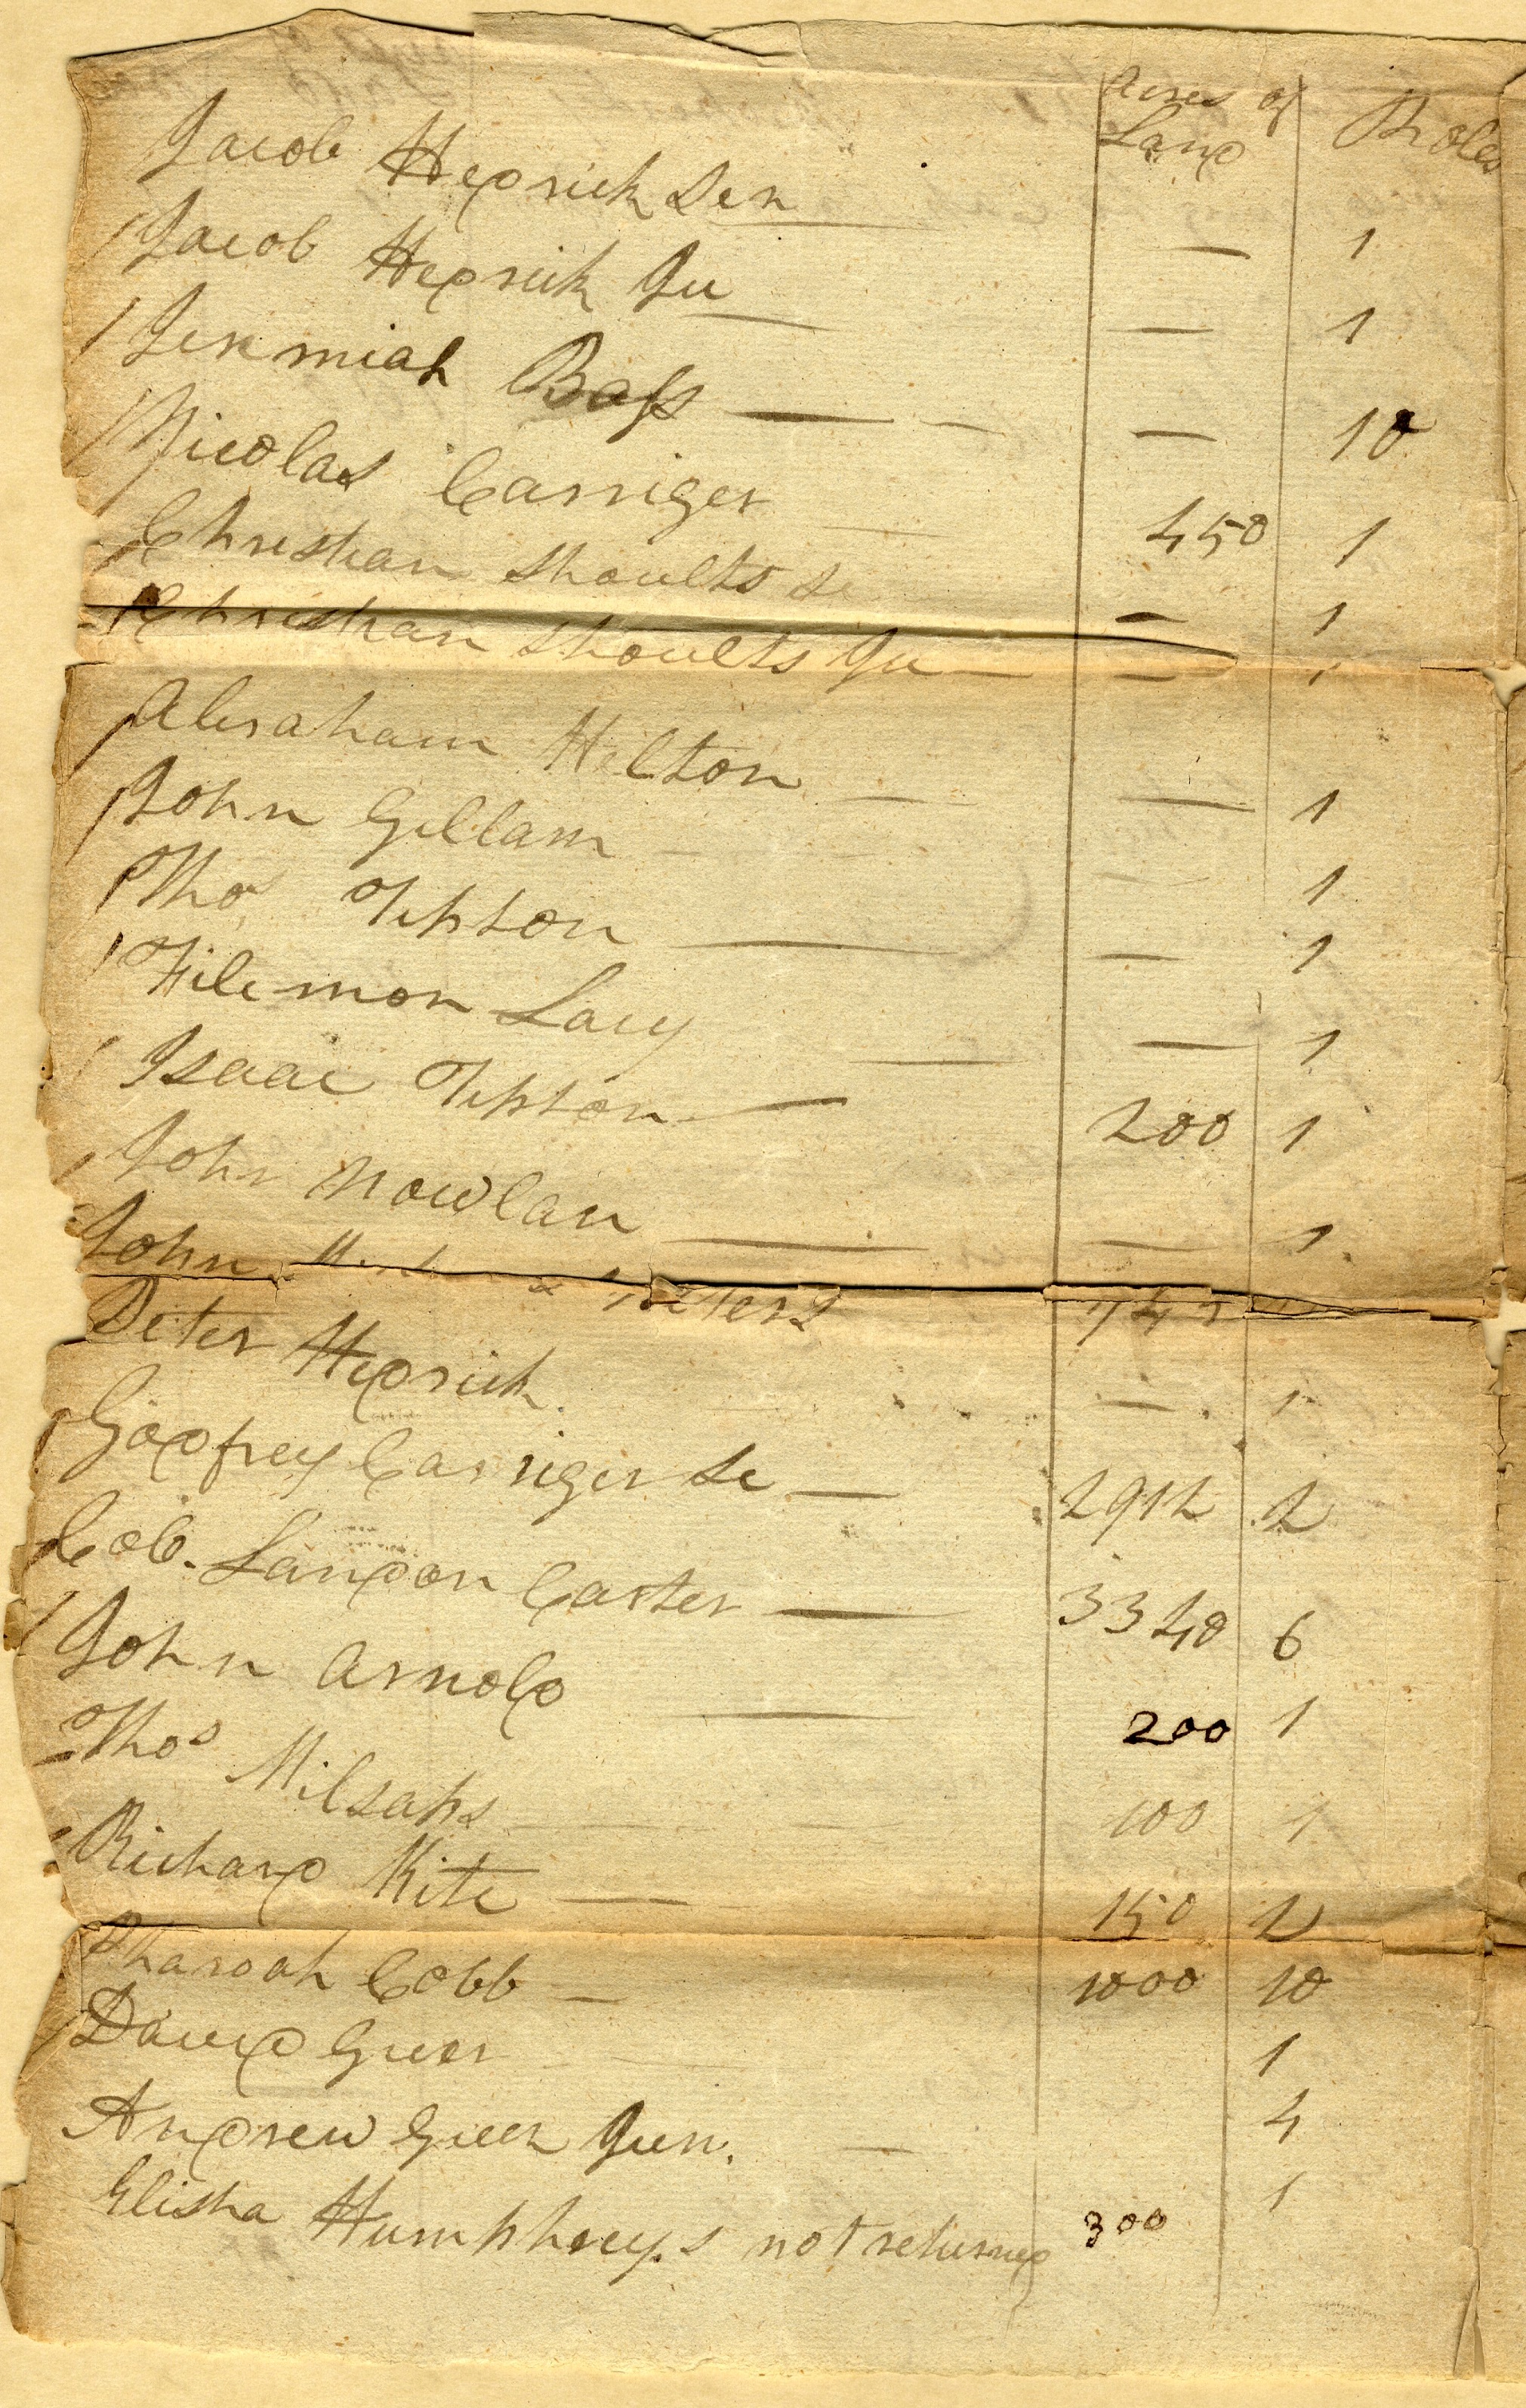 Acres of Land Poles
Jacob Hedrick Sen — 1
Jacob Hedrick Ju — 1
Jeremiah Bass — 10
Nicolas Carriger 450 1
Christian Shoults Se — 1
Christian Shoults Ju — 1
Abraham Helton — 1
John Gillam — 1
Thos Tipton — 1
Filemon Lacy — 1
Isaac Tipton 200 1
John Nowlan — 1
John
Peter Hedrick — 1
Godfrey Carriger Se 2912 2
Col. Landon Carter 3340 6
John Arnold 200 1
Thos Milsaps 100 1
Richard Kite 150 2
Pharoah Cobb 1000 10
David Greer 1
Andrew Greer Jun. 4
Elisha Humphreys not returned 300 1